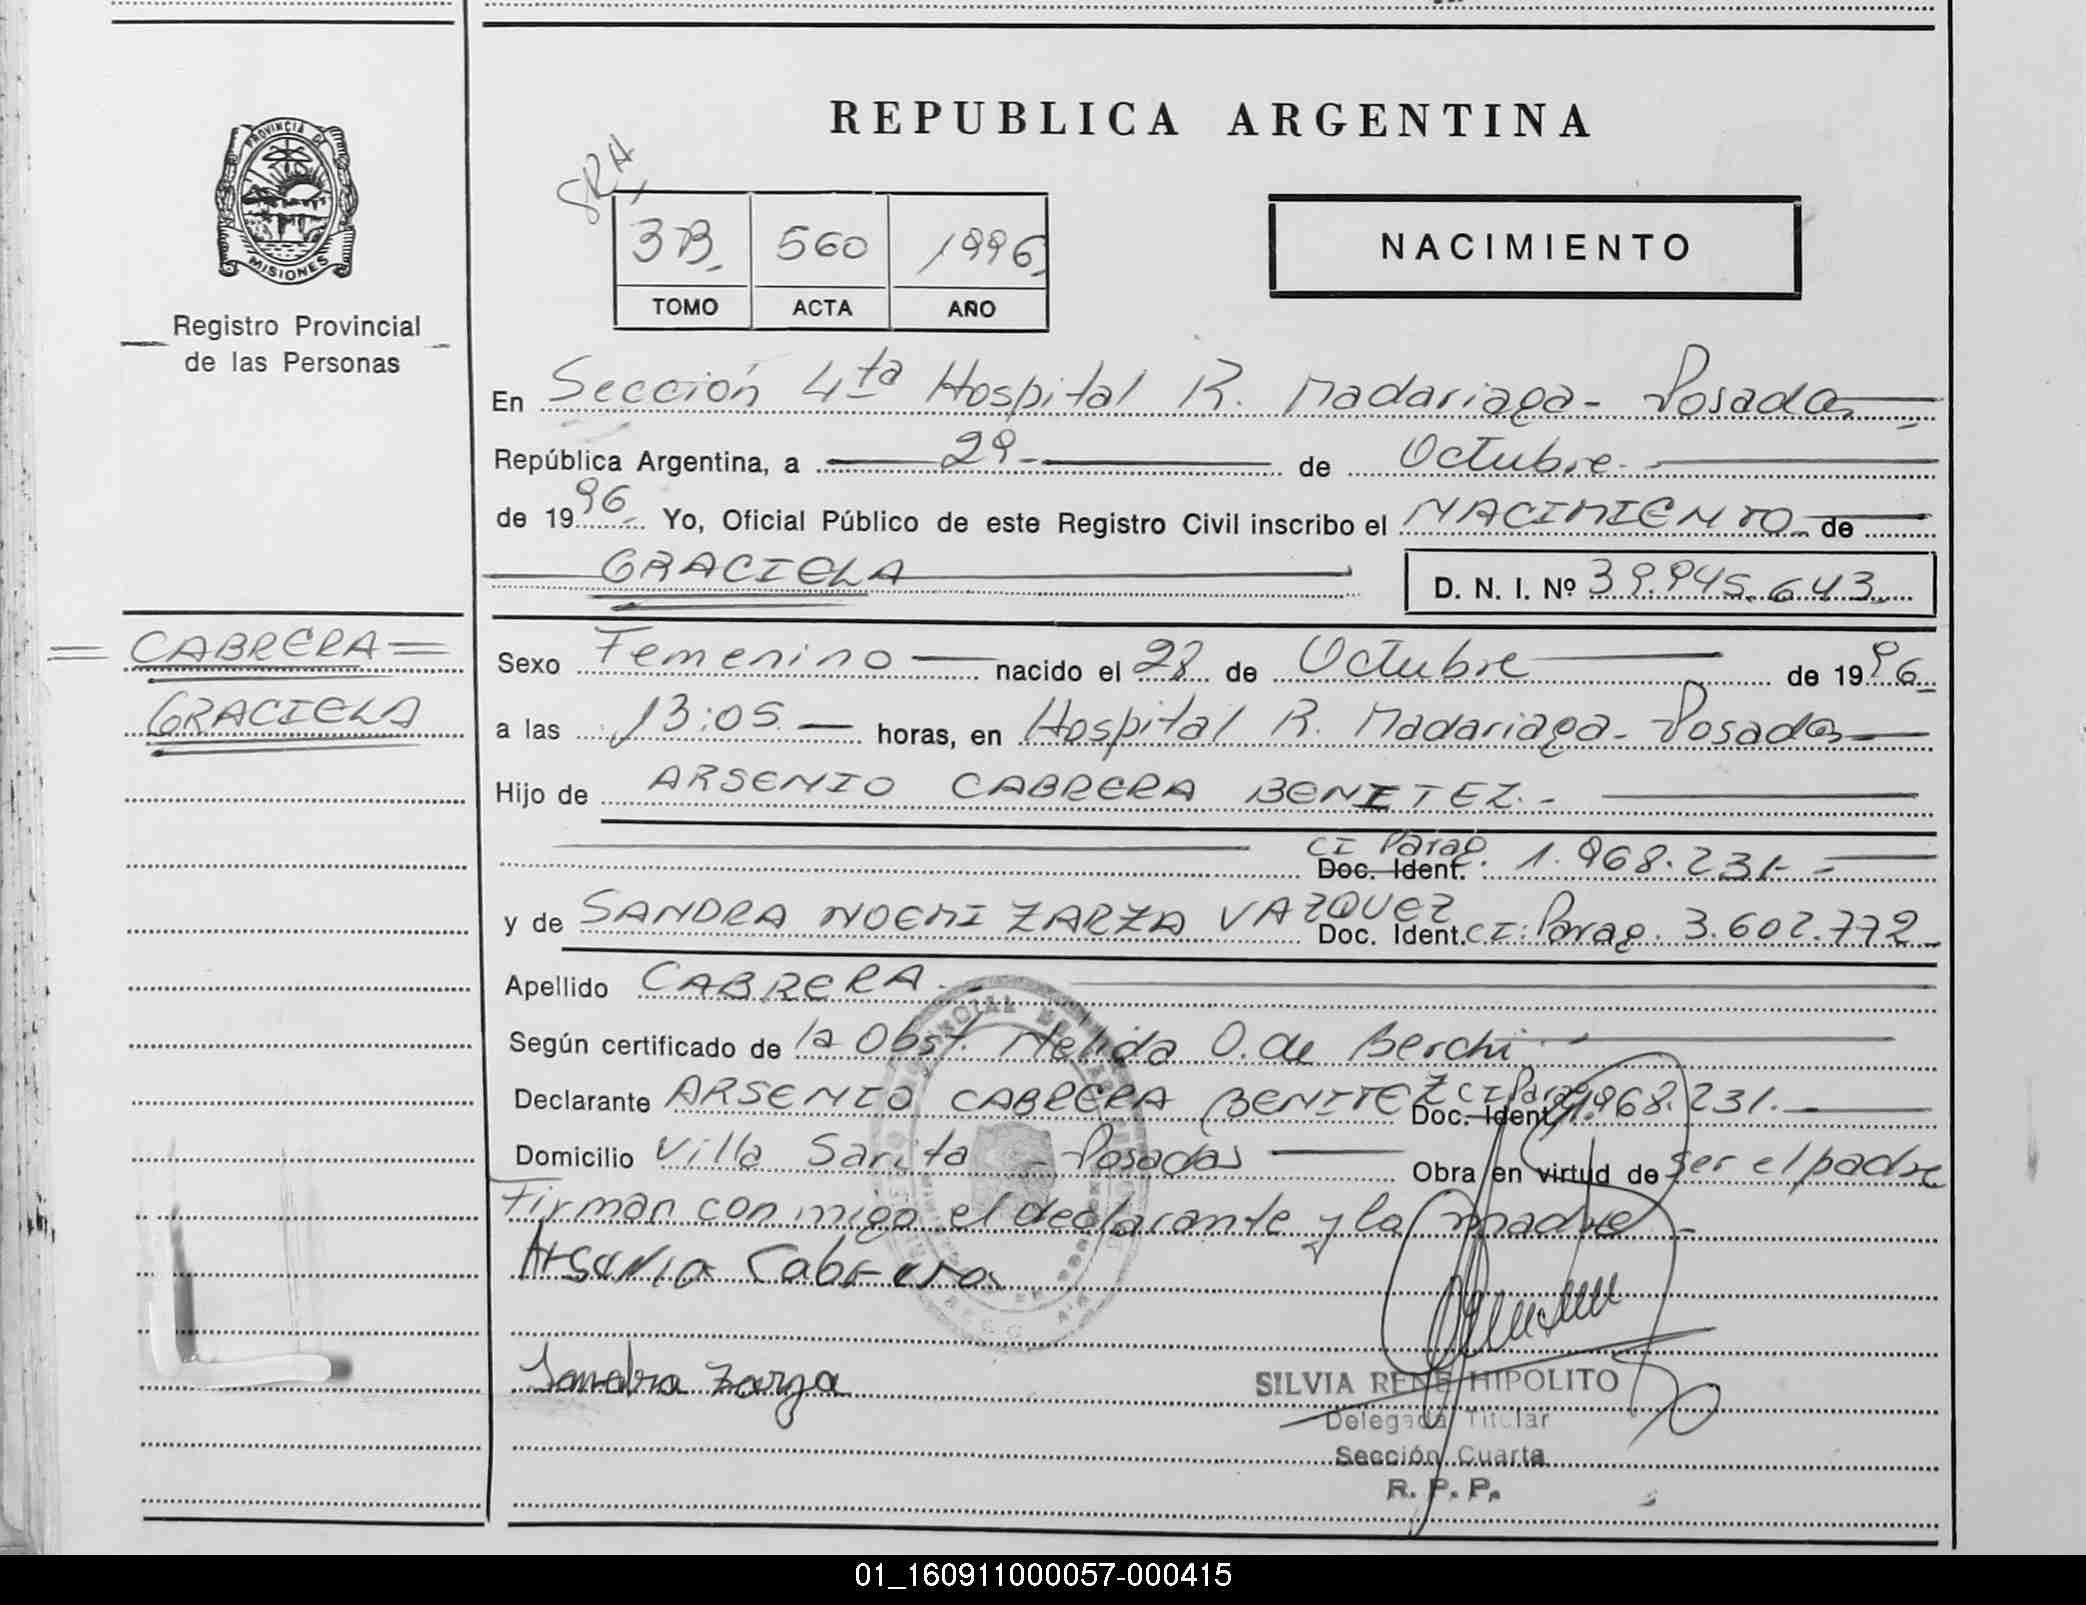 REPUBLICA ARGENTINA
PROVINCIA DE
MISIONES
Registro Provincial
de las Personas
SRA
3B. 560 1996
TOMO ACTA AÑO
NACIMIENTO
En Sección 4ta Hospital R. Madariaga - Posadas
República Argentina, a 29 de Octubre
de 1996 Yo, Oficial Público de este Registro Civil inscribo el NACIMIENTO de
GRACIELA D. N. I. Nº 39.945.643
CABRERA
GRACIELA
Sexo Femenino nacido el 28 de Octubre de 1996
a las 13:05 horas, en Hospital R. Madariaga - Posadas
Hijo de ARSENIO CABRERA BENITEZ.-
CI Parag. Doc. Ident. 1.968.231-
y de SANDRA NOEMI ZARZA VAZQUEZ Doc. Ident. CI: Parag. 3.602.772
Apellido CABRERA
Según certificado de la Obst. Nelida O. de Berchi
Declarante ARSENIO CABRERA BENITEZ CI Parag Doc. Ident. 1.968.231.
Domicilio Villa Sarita - Posadas Obra en virtud de ser el padre
Firman con migo el declarante y la madre
Arsenio Cabrera
Sandra Zarza
SILVIA RENE HIPOLITO
Delegada Titular
Sección Cuarta
R. P. P.
01_160911000057-000415